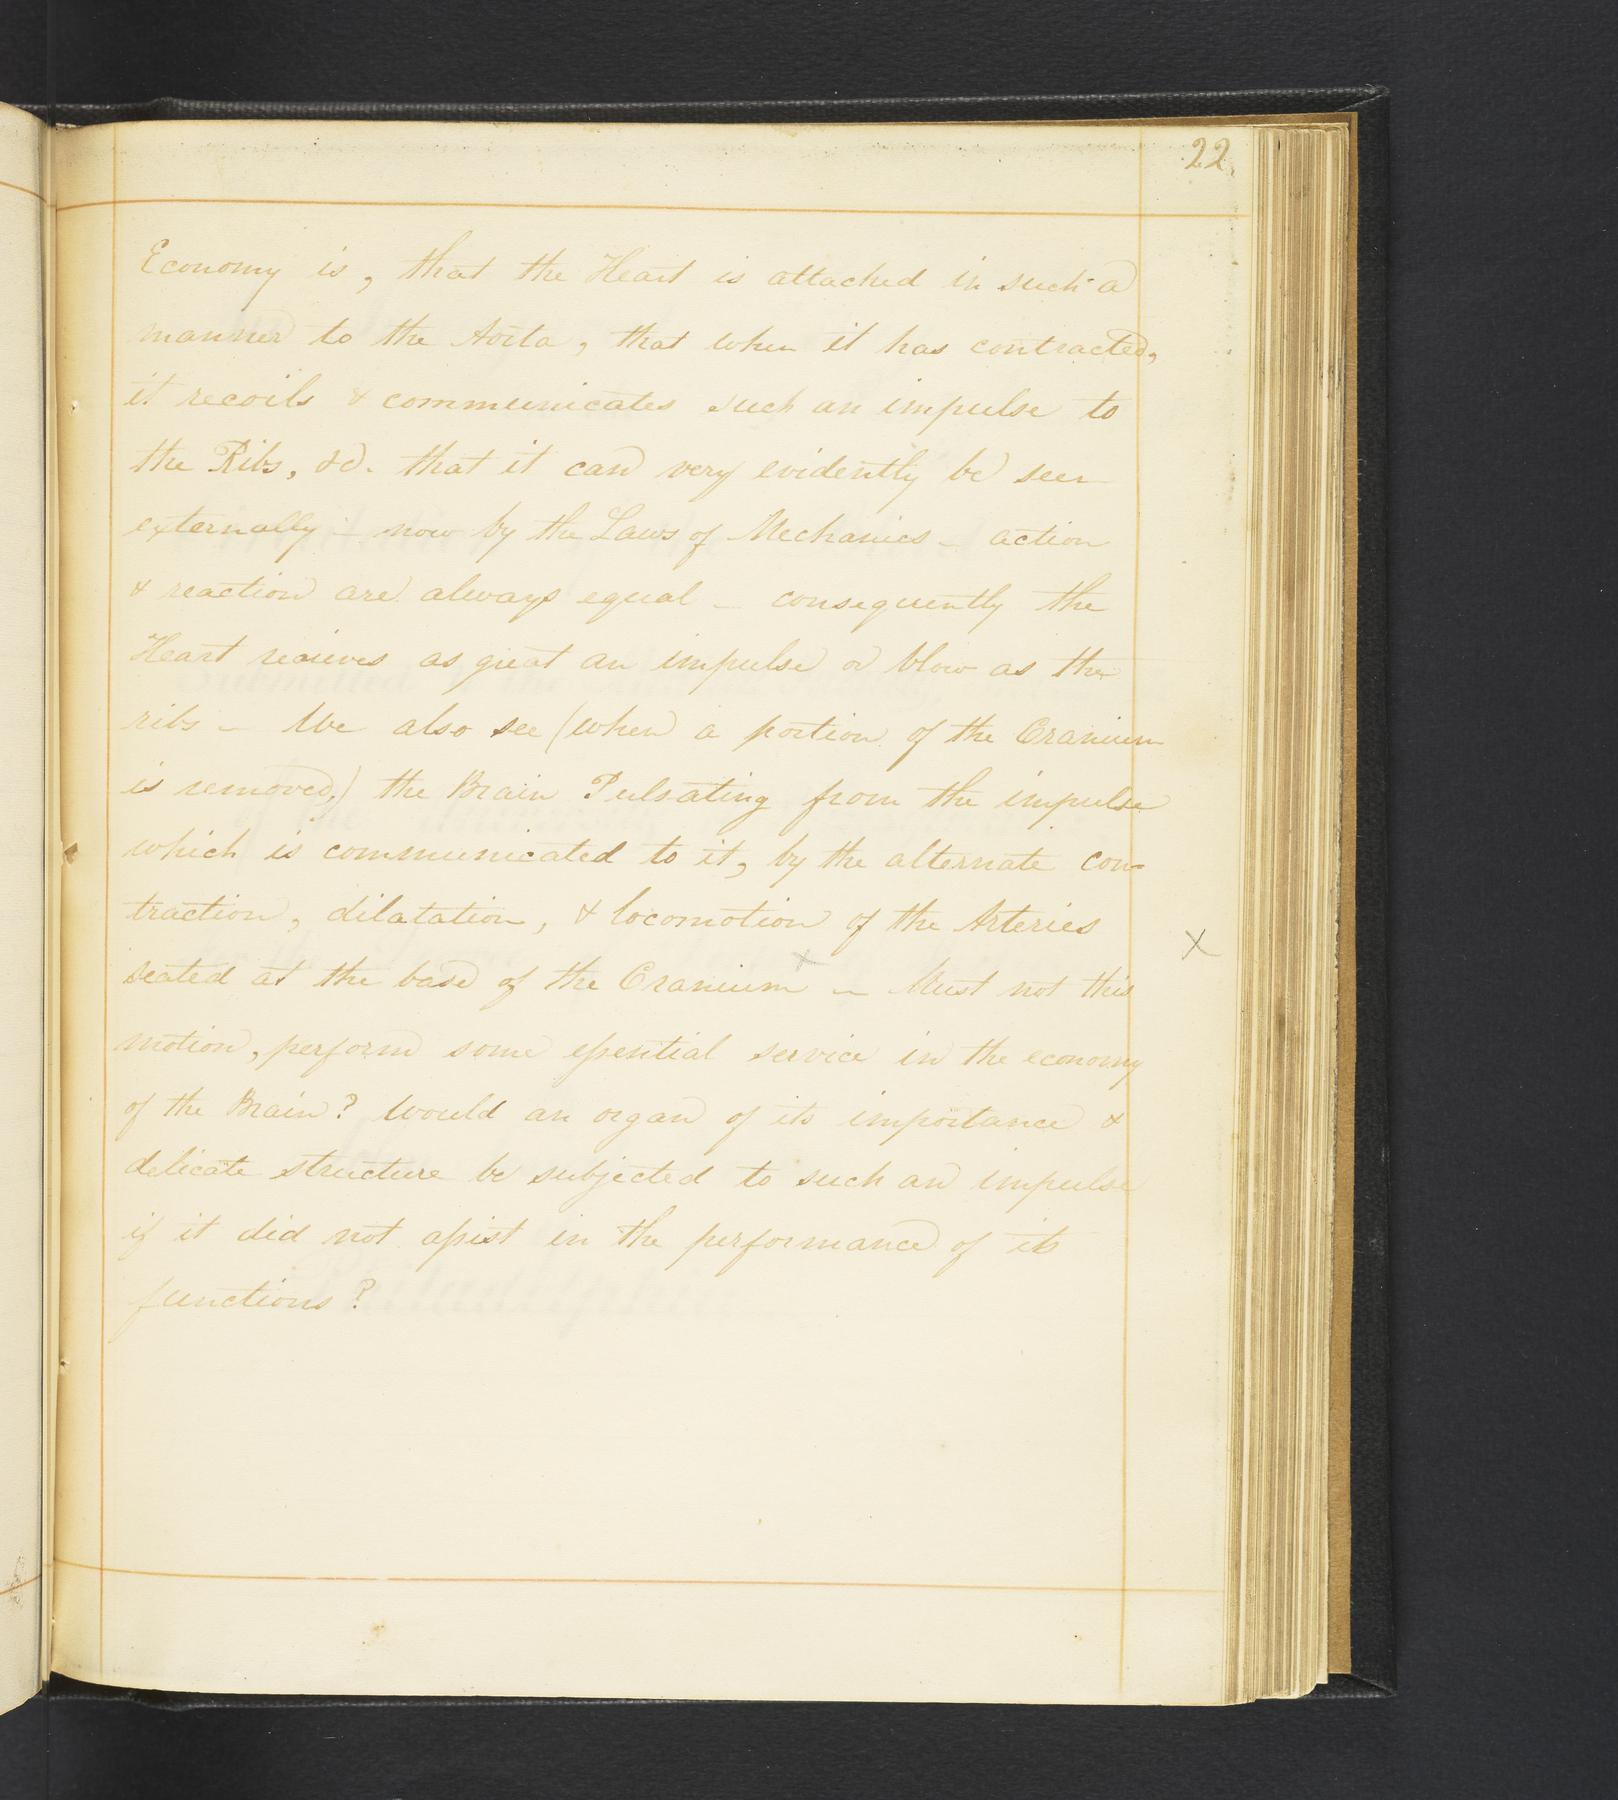 22
Economy is, that the Heart is attached in such a
manner to the Aorta, that when it has contracted,
it recoils & communicates such an impulse to
the Ribs, &c. that it can very evidently be seen
externally – now by the Laws of Mechanics – action
& reaction are always equal – consequently the
Heart recieves as great an impulse or blow as the
ribs – We also see (when a portion of the Cranium
is removed,) the Brain Pulsating from the impulse
which is communicated to it, by the alternate con=
traction, dilatation, & locomotion of the Arteries
X
seated at the base of the Cranium x – Must not this
motion, perform some essential service in the economy
of the Brain? Would an organ of its importance &
delicate structure be subjected to such an impulse
if it did not assist in the performance of its
functions?